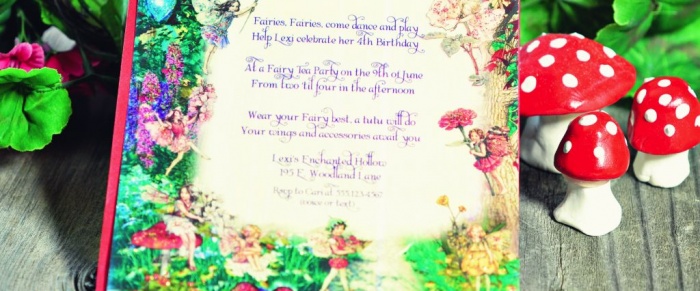 Fairies, Fairies, come dance and play
Help Lexi celebrate her 4th Birthday
At a Fairy Tea Party on the 9th of June
From two 'til four in the afternoon
Wear your Fairy best, a tutu will do
Your wings and accessories await you
Lexi's Enchanted Hollow
195 E. Woodland Lane
Rsvp to Carol at 555.123.4567
(voice or text)